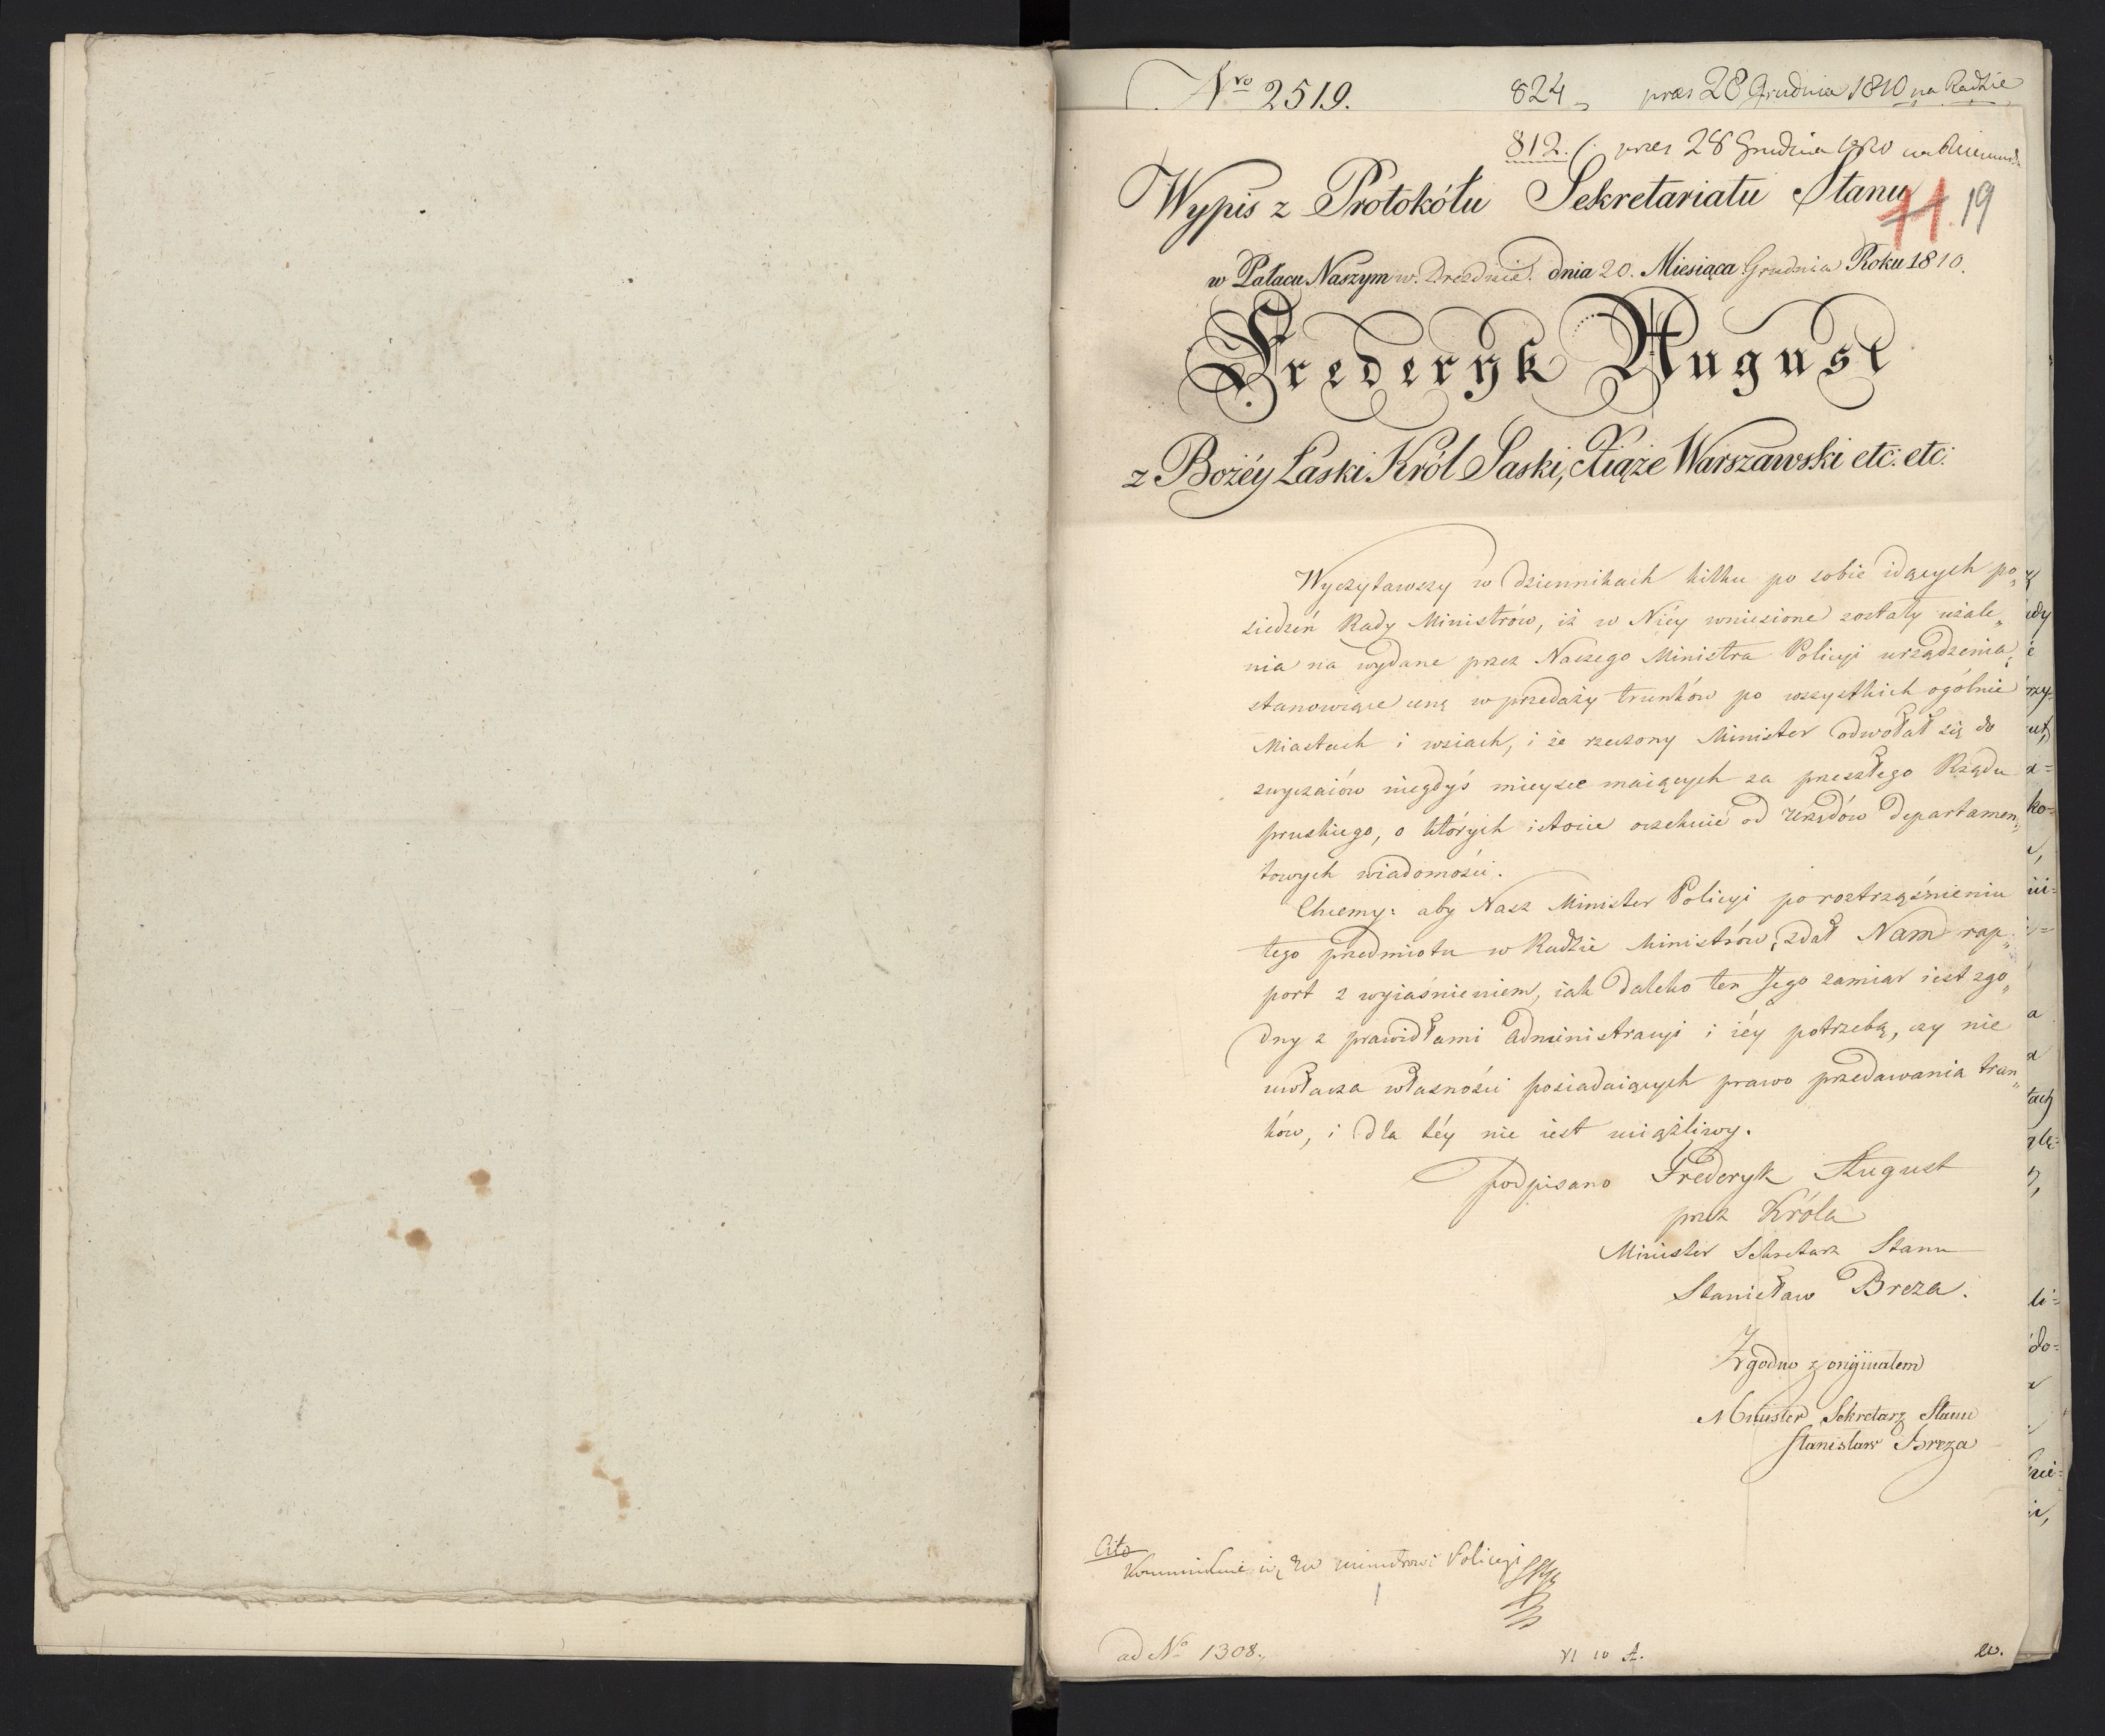 Nro 2519.
824
prez 28 Grudnia 1810 na Radzie
812. prez 28 Grudnia 1810
Wypis z Protokółu Sekretariatu Stanu
11. 19
w Pałacu Naszym w Dreznie. dnia 20. Miesiąca Grudnia Roku 1810.
Frederyk August
z Bożéy Łaski Król Saski, Xiąże Warszawski etc. etc.
Wyczytawszy w dziennikach kilku po sobie idących po„
siedzeń Rady Ministrów, iż w Niéy wniesione zostały użale„
nia na wydane przez Naszego Ministra Policyi urządzenia,
stanowiące cenę w przedaży trunków po wszystkich ogólnie
Miastach i wsiach, i że rzeczony Minister odwołał się do
zwyczaiów niegdyś mieysce maiących za przeszłego Rządu
pruskiego, o których istocie oczekuie od Urzędów departamen„
towych wiadomości.
Chcemy: aby Nasz Minister Policyi po roztrząśnieniu
tego przedmiotu w Radzie Ministrów, zdał Nam rap„
port z wyiaśnieniem, iak daleko ten Jego zamiar iest zgo„
dny z prawidłami administracyi i iéy potrzebą, czy nie
uwłacza własności posiadaiących prawo przedawania trun„
ków, i dla téy nie iest uciążliwy.
podpisano Frederyk August
przez Króla
Minister Sekretarz Stanu
Stanisław Breza.
Zgodno z originałem
Minister Sekretarz Stanu
Stanisław Breza
Cito
ministrowi Policyi
ad No 1308.
VI 10 A.